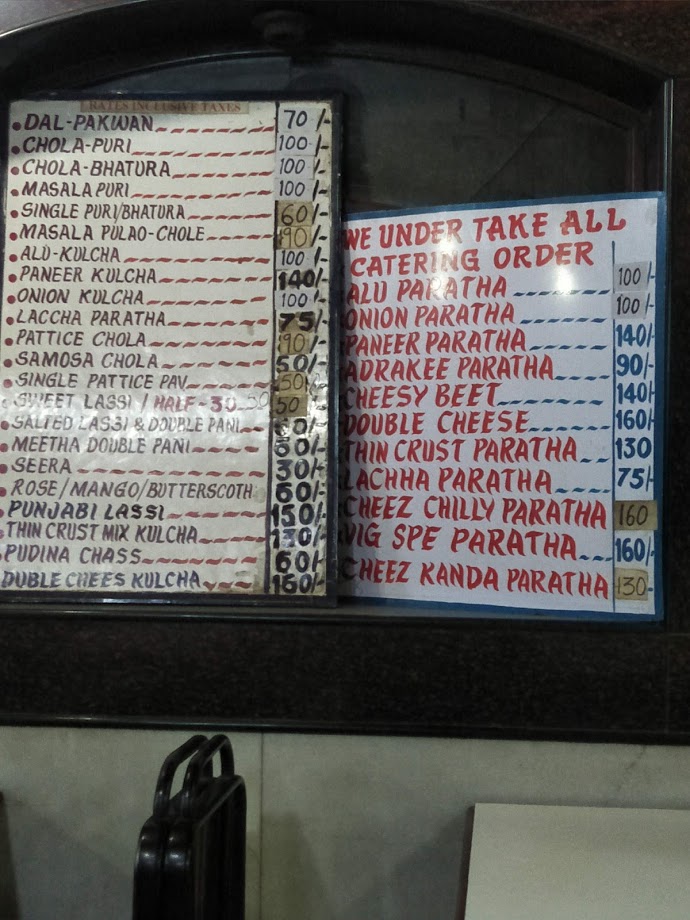 RATES INCLUSIVE TAXES
DAL-PAKWAN 70/-
CHOLA-PURI 100/-
CHOLA-BHATURA 100/-
MASALA PURI 100/-
SINGLE PURI/BHATURA 60/-
MASALA PULAO-CHOLE 190/-
ALU-KULCHA 100/-
PANEER KULCHA 140/-
ONION KULCHA 100/-
LACCHA PARATHA 75/-
PATTICE CHOLA 190/-
SAMOSA CHOLA 50/-
SINGLE PATTICE PAV 50/-
SWEET LASSI / HALF-30 50
SALTED LASSI & DOUBLE PANI 60/-
MEETHA DOUBLE PANI 60/-
SEERA 30/-
ROSE/MANGO/BUTTERSCOTH 60/-
PUNJABI LASSI 150/-
THIN CRUST MIX KULCHA 130/-
PUDINA CHASS 60/-
DUBLE CHEES KULCHA 160/-
WE UNDER TAKE ALL
CATERING ORDER
ALU PARATHA 100/-
ONION PARATHA 100/-
PANEER PARATHA 140/-
ADRAKEE PARATHA 90/-
CHEESY BEET 140/-
DOUBLE CHEESE 160/-
THIN CRUST PARATHA 130
LACHHA PARATHA 75/-
CHEEZ CHILLY PARATHA 160
VIG SPE PARATHA 160/-
CHEEZ KANDA PARATHA 130-